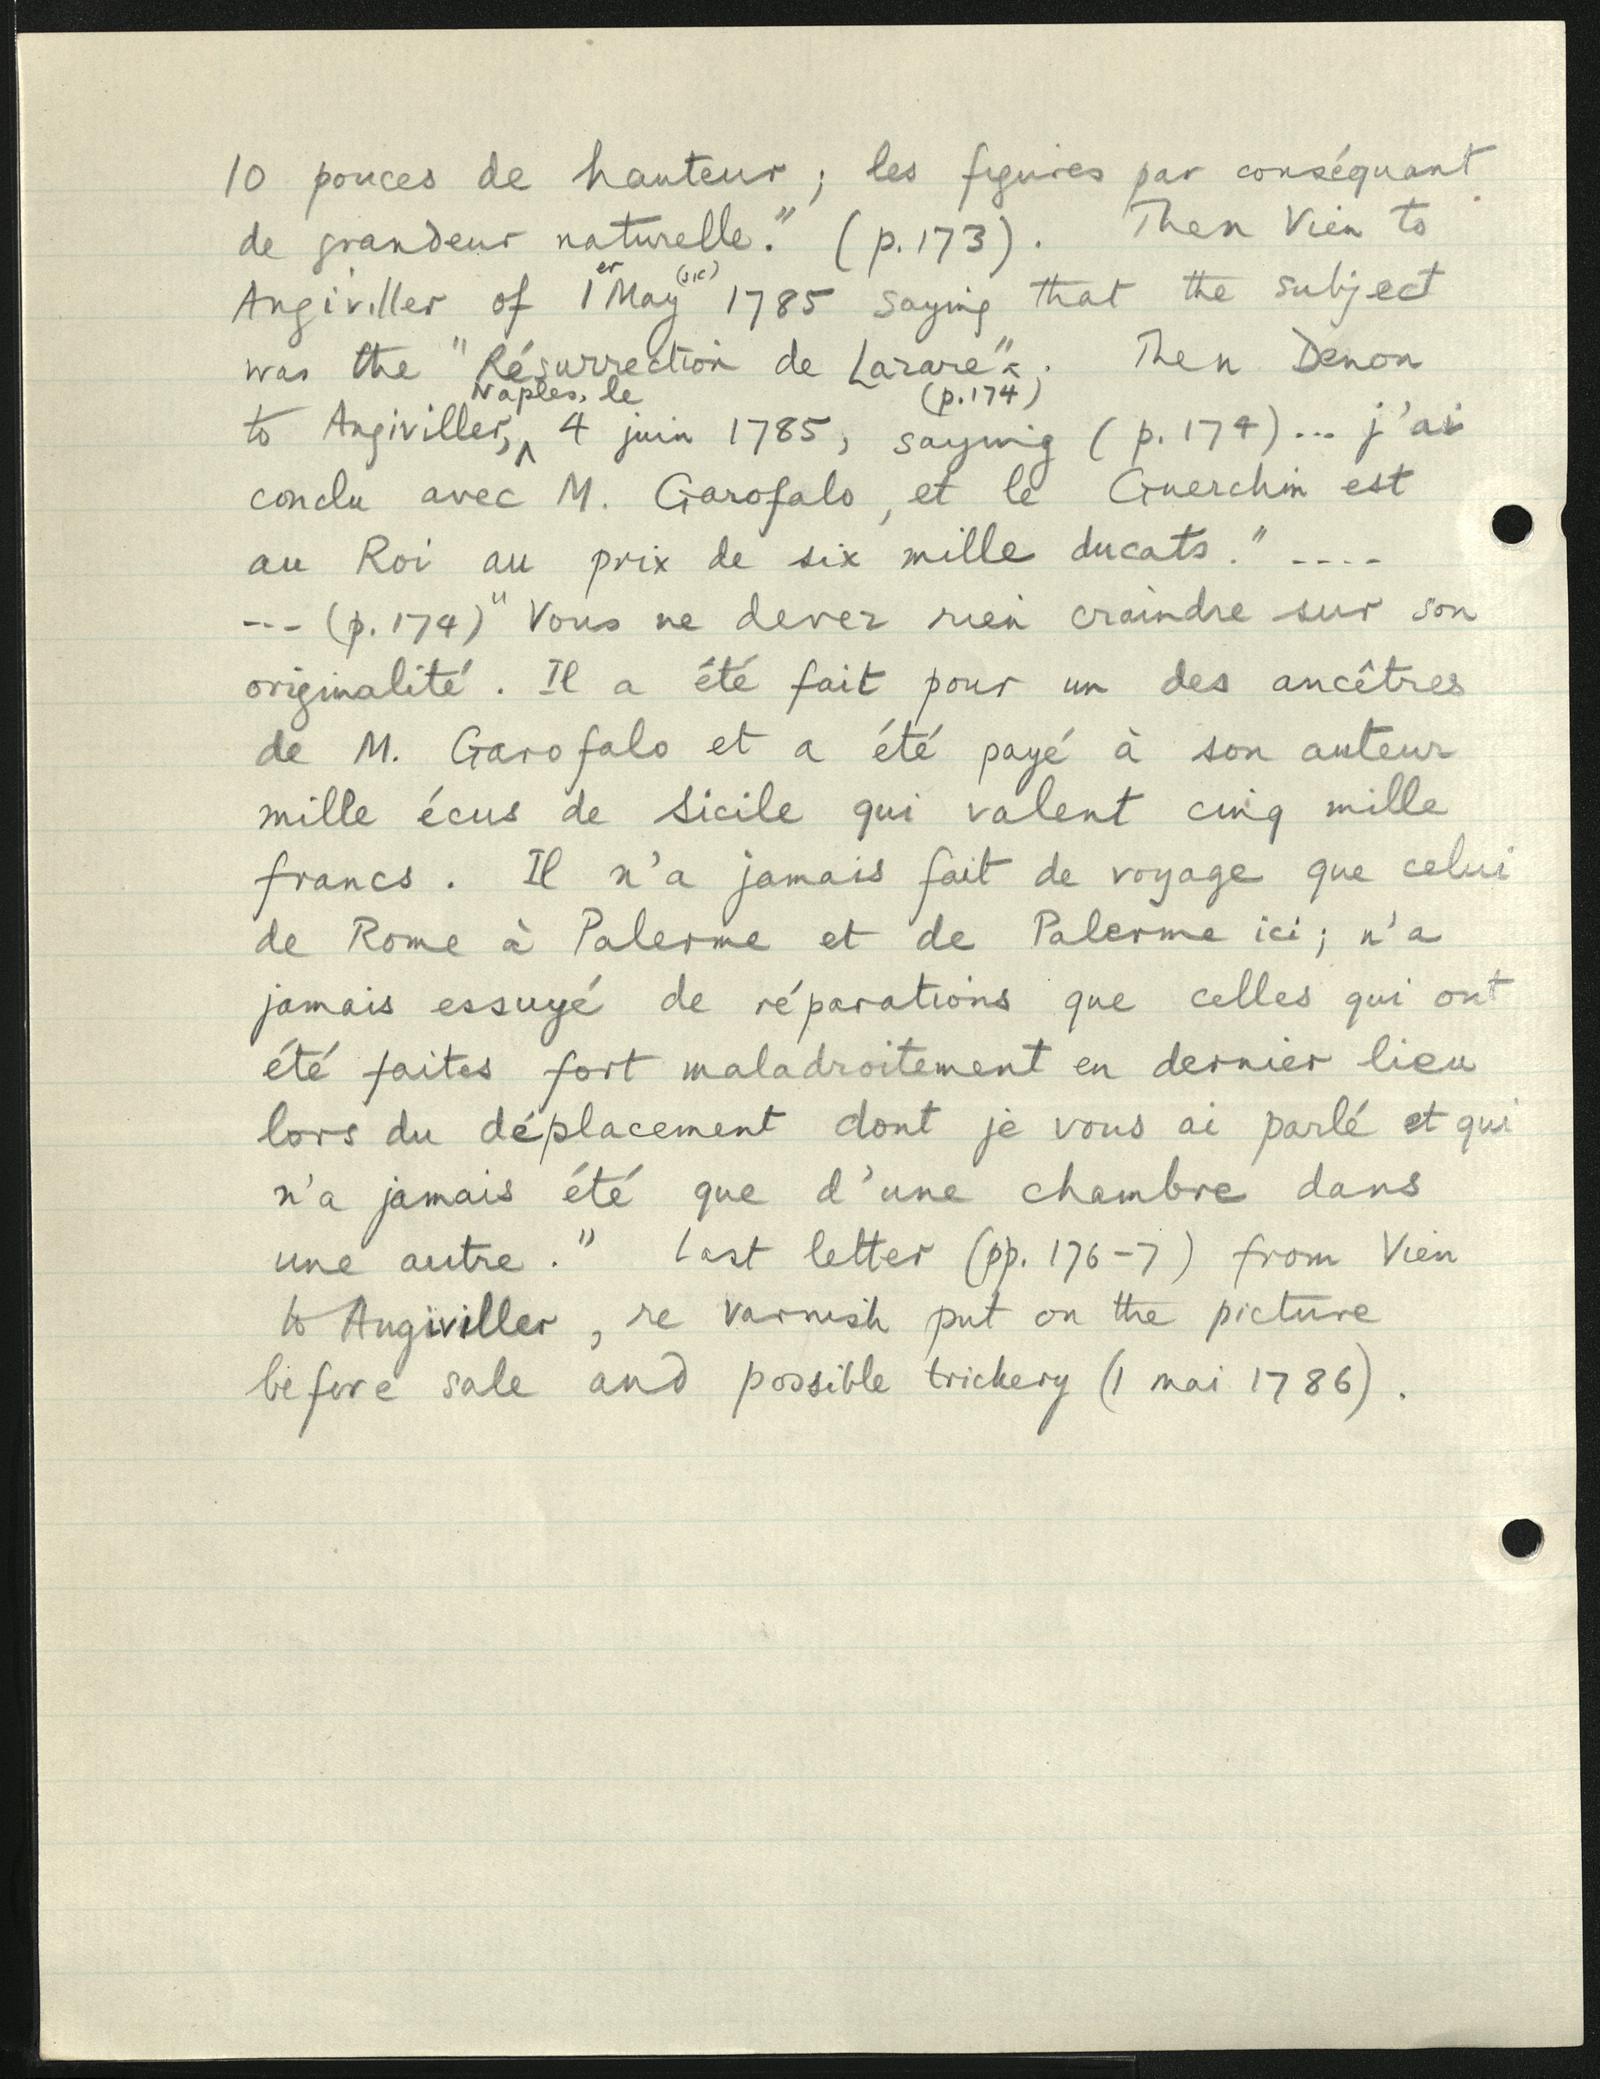 10 pouces de hauteur ; les figures par conséquant
de grandeur naturelle." (p. 173). Then Vien to
Angiviller of 1er May (sic) 1785 saying that the subject
was the "Résurrection de Lazare" (p. 174). Then Denon
to Angiviller, Naples, le 4 juin 1785, saying (p. 174) ... j'ai
conclu avec M. Garofalo, et le Guerchin est
au Roi au prix de six mille ducats." ----
--- (p. 174) "Vous ne devez rien craindre sur son
originalité. Il a été fait pour un des ancêtres
de M. Garofalo et a été payé à son auteur
mille écus de Sicile qui valent cinq mille
francs. Il n'a jamais fait de voyage que celui
de Rome à Palerme et de Palerme ici ; n'a
jamais essuyé de réparations que celles qui ont
été faites fort maladroitement en dernier lieu
lors du déplacement dont je vous ai parlé et qui
n'a jamais été que d'une chambre dans
une autre." Last letter (pp. 176-7) from Vien
to Angiviller, re varnish put on the picture
before sale and possible trickery (1 mai 1786).